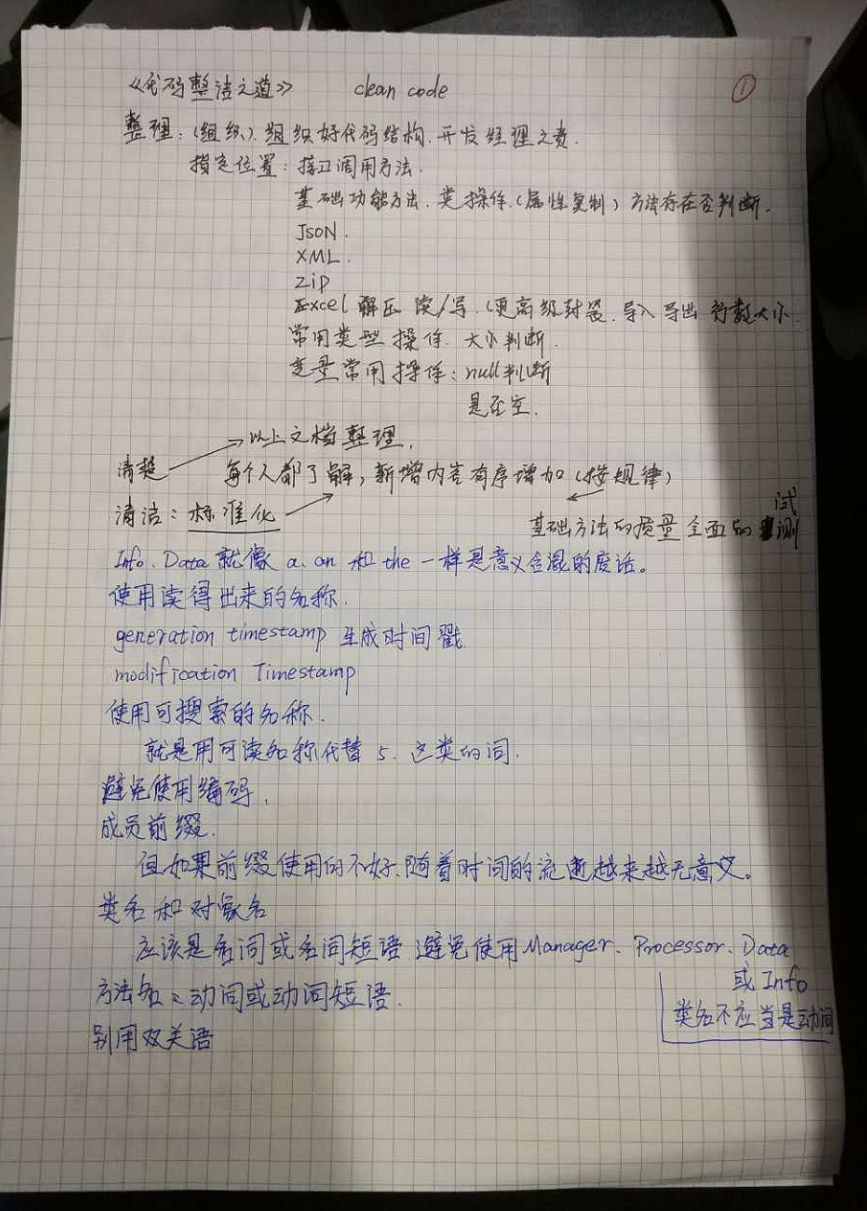 《代码整洁之道》 clean code ①
整理:(组织).组织好代码结构.开发经理之责.
指定位置:接口调用方法.
基础功能方法.类操作.(属性复制)方法存在否判断.
JSON.
XML.
Zip
Excel 解压 读/写.(更高级封装.导入导出 行数大小.
常用类型操作.大小判断.
变量常用操作:null判断
是否空.
以上文档整理.
清楚 每个人都了解,新增内容有序增加(按规律)
清洁:标准化
基础方法的质量 全面的测试
Info、Data就像a、an和the一样是意义含混的废话。
使用读得出来的名称.
generation timestamp 生成时间戳
modification Timestamp
使用可搜索的名称.
就是用可读名称代替5.这类的词.
避免使用编码.
成员前缀.
但如果前缀使用的不好、随着时间的流逝越来越无意义。
类名和对象名
应该是名词或名词短语 避免使用Manager、Processor、Data
或Info
方法名:动词或动词短语.
类名不应当是动词
别用双关语